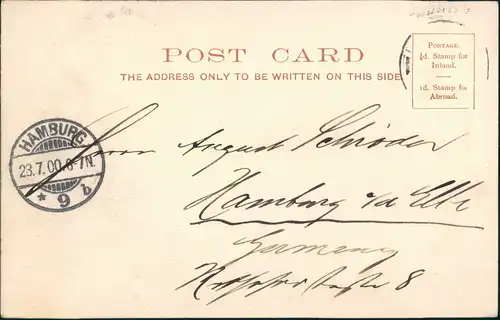 POST CARD
THE ADDRESS ONLY TO BE WRITTEN ON THIS SIDE.
POSTAGE.
½d. Stamp for
Inland.
1d. Stamp for
Abroad.
HAMBURG
23.7.00.6-7N.
* 9 b
Herrn August Schröder
Hamburg a/d Elbe
Germany
8